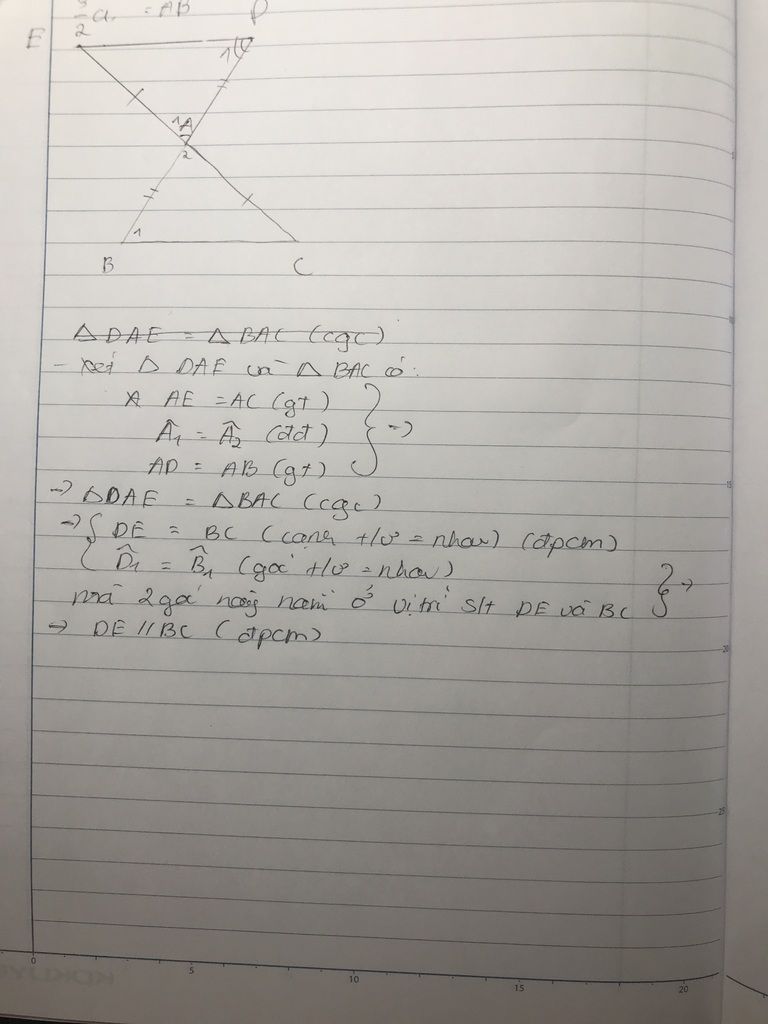 2
= AB
E
D
1
1 A
2
1
B
C
△ DAE = △ BAC (cgc)
- xét △ DAE và △ BAC có:
AE = AC (gt)
Â₁ = Â₂ (đđ)
AD = AB (gt)
} →
→ △DAE = △BAC (cgc)
→ { DE = BC (cạnh t/ư = nhau) (đpcm)
D̂₁ = B̂₁ (góc t/ư = nhau)
mà 2 góc này nằm ở vị trí slt DE và BC } →
→ DE // BC (đpcm)
0
5
10
15
20
10
15
20
25